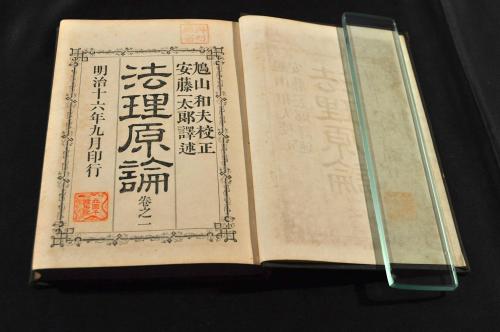 鳩山和夫校正
安藤一太郎譯述
法理原論 卷之一
明治十六年九月印行